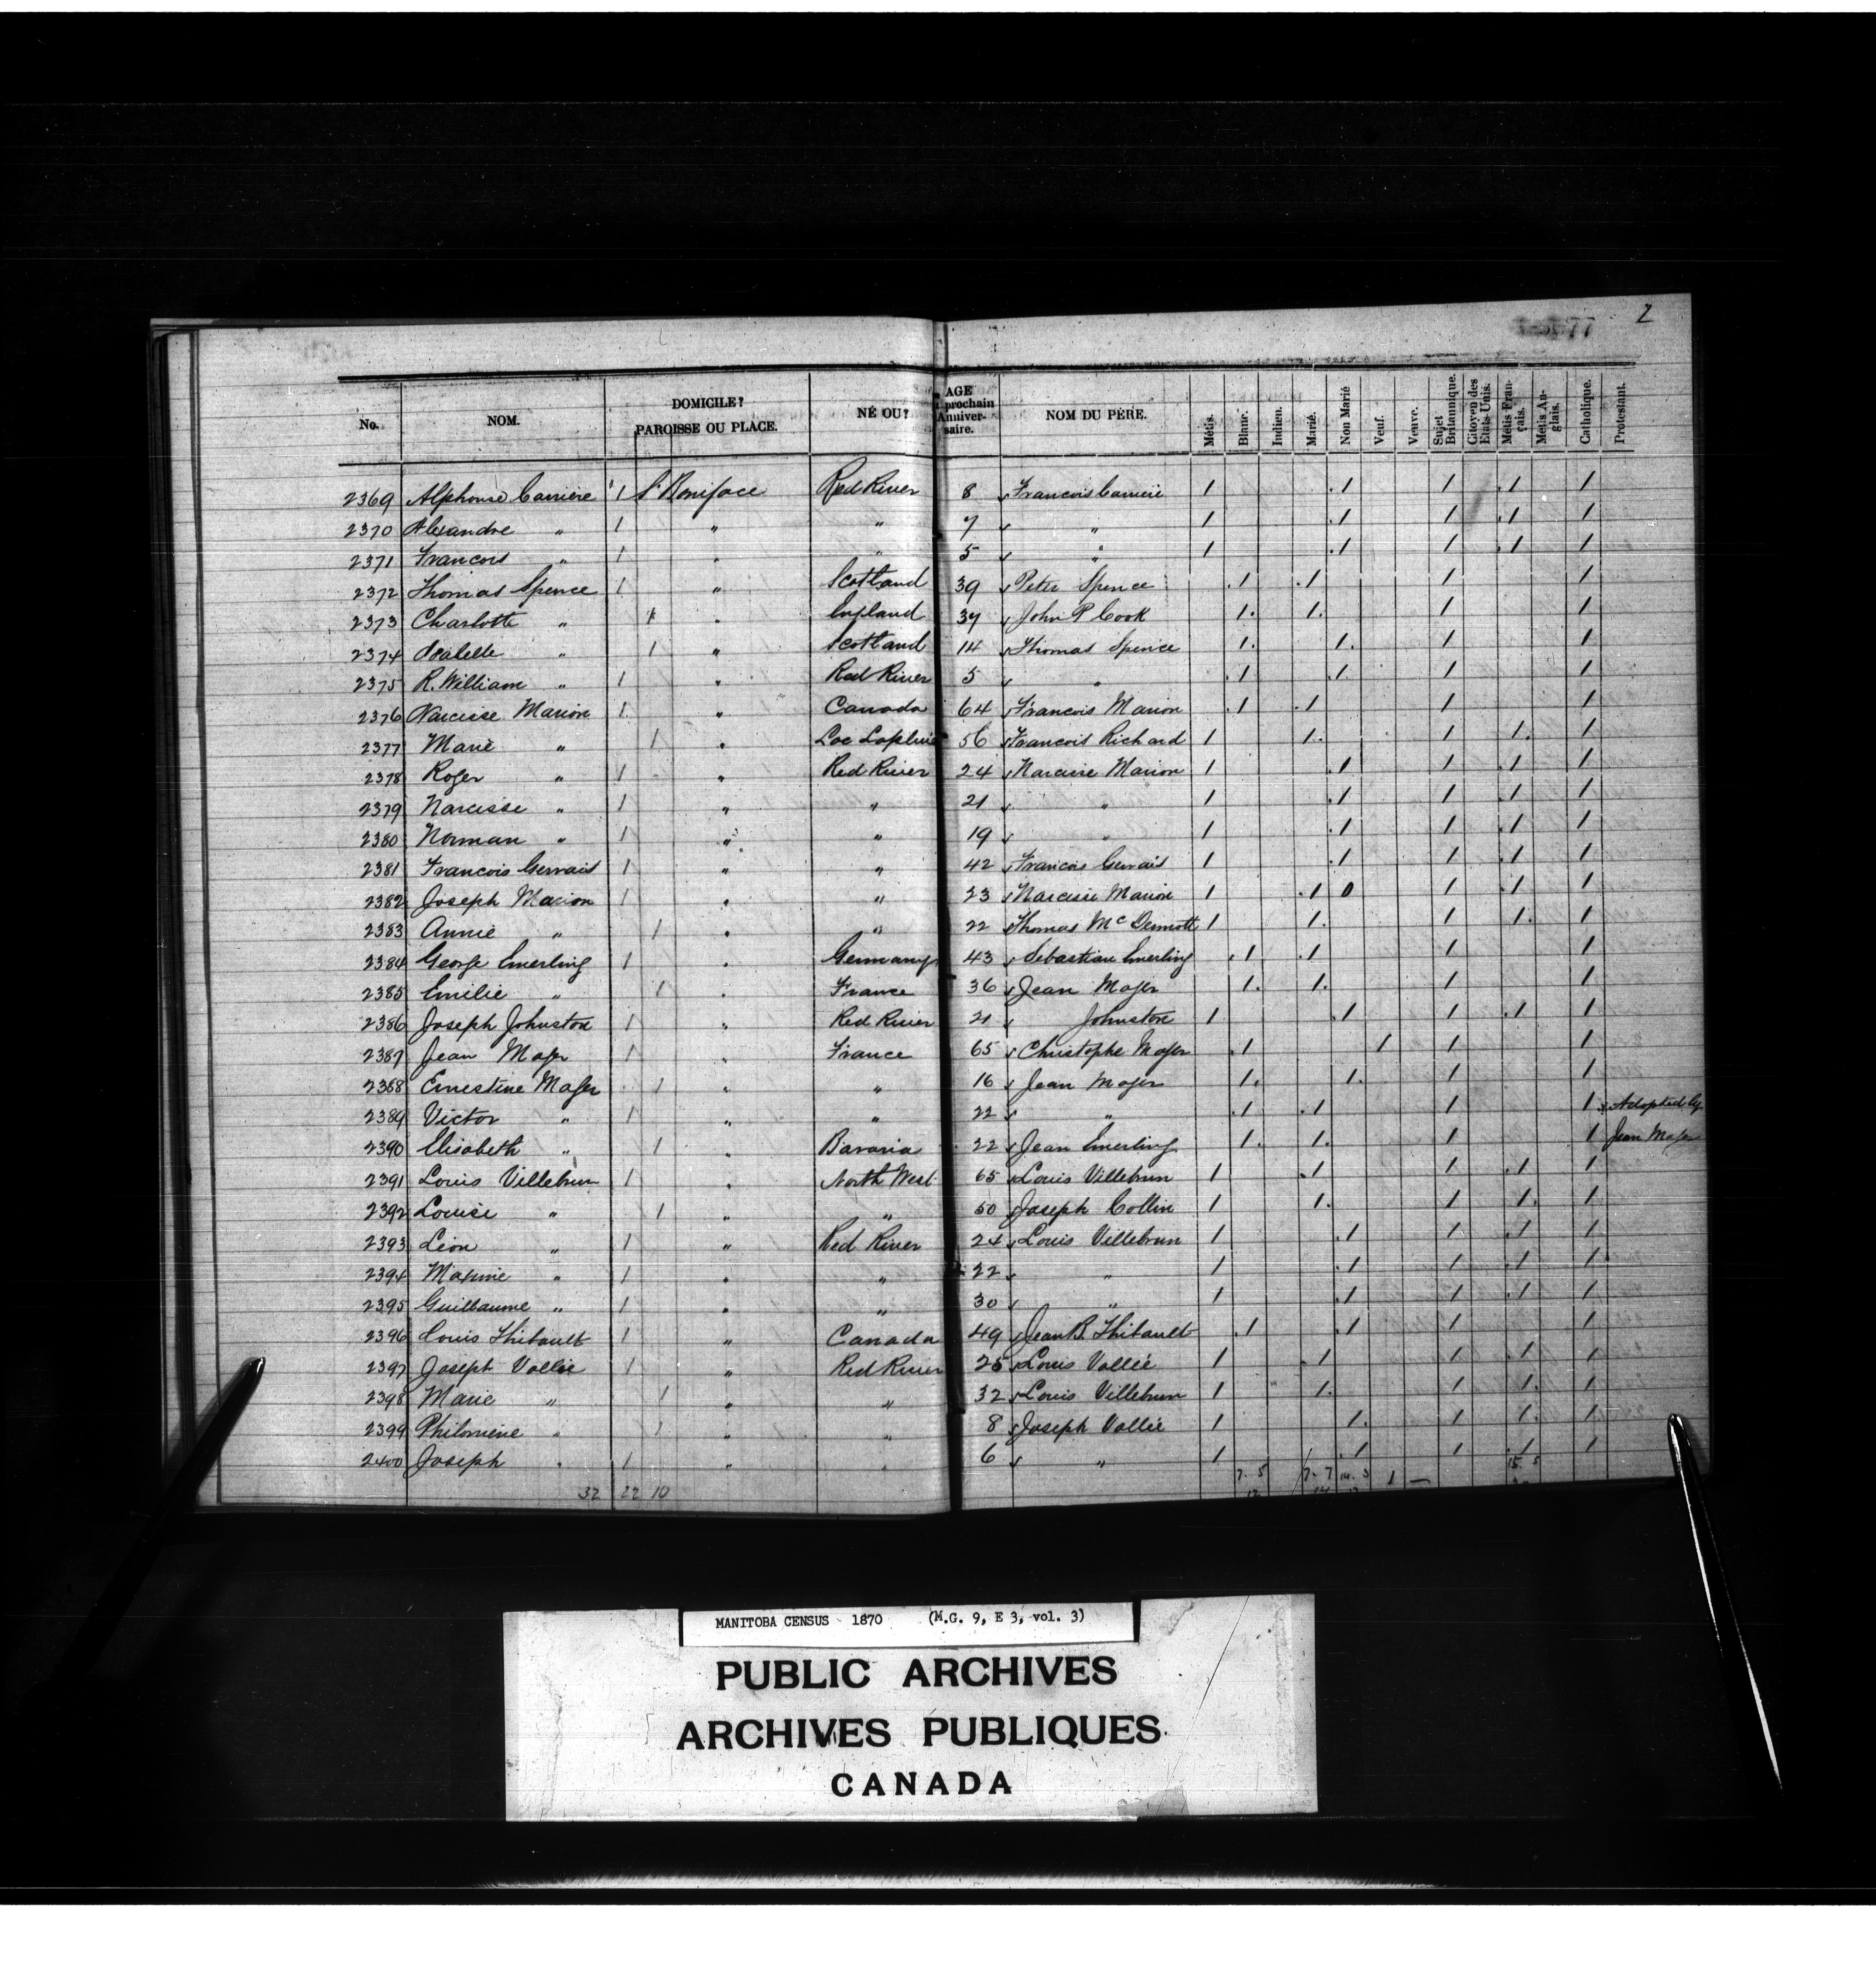 2
No. NOM. DOMICILE? PAROISSE OU PLACE. NÉ OU? AGE prochain Anniver- saire. NOM DU PÈRE. Métis. Blanc. Indien. Marié. Non Marié Veuf. Veuve. Sujet Britannique. Citoyen des Etats-Unis. Métis Fran- çais. Métis An- glais. Catholique. Protestant.
2369 Alphonse Carriere 1 St Boniface Red River 8 Francois Carriere 1 1 1 1 1
2370 Alexandre " 1 " " 7 " 1 1 1 1 1
2371 Francois " 1 " " 5 " 1 1 1 1 1
2372 Thomas Spence 1 " Scotland 39 Peter Spence 1 1 1 1
2373 Charlotte " 1 " England 37 John P Cook 1 1 1 1
2374 Isabelle " 1 " Scotland 14 Thomas Spence 1 1 1 1
2375 R. William " 1 " Red River 5 " 1 1 1 1
2376 Narcisse Marion 1 " Canada 64 Francois Marion 1 1 1 1
2377 Marie " 1 " Lac Lapluie 56 Francois Richard 1 1 1 1 1
2378 Roger " 1 " Red River 24 Narcisse Marion 1 1 1 1 1
2379 Narcisse " 1 " " 21 " 1 1 1 1 1
2380 Norman " 1 " " 19 " 1 1 1 1 1
2381 Francois Gervais 1 " " 42 Francois Gervais 1 1 1 1 1
2382 Joseph Marion 1 " " 23 Narcisse Marion 1 1 0 1 1 1
2383 Annie " 1 " " 22 Thomas McDermott 1 1 1 1 1
2384 George Emerling 1 " Germany 43 Sebastian Emerling 1 1 1 1
2385 Emilie " 1 " France 36 Jean Mager 1 1 1 1
2386 Joseph Johnston 1 " Red River 21 Johnston 1 1 1 1 1
2387 Jean Mager 1 " France 65 Christophe Mager 1 1 1 1
2388 Ernestine Mager 1 " " 16 Jean Mager 1 1 1 1
2389 Victor " 1 " " 22 " 1 1 1 1 Adopted by
2390 Elisabeth " 1 " Bavaria 22 Jean Emerling 1 1 1 1 Jean Mager
2391 Louis Villebrun 1 " North West 65 Louis Villebrun 1 1 1 1 1
2392 Louise " 1 " " 50 Joseph Collin 1 1 1 1 1
2393 Léon " 1 " Red River 24 Louis Villebrun 1 1 1 1 1
2394 Maxime " 1 " " 22 " 1 1 1 1 1
2395 Guillaume " 1 " " 30 " 1 1 1 1 1
2396 Louis Thibault 1 " Canada 49 Jean B. Thibault 1 1 1 1
2397 Joseph Vallée 1 " Red River 25 Louis Vallée 1 1 1 1 1
2398 Marie " 1 " " 32 Louis Villebrun 1 1 1 1 1
2399 Philomène " 1 " " 8 Joseph Vallée 1 1 1 1 1
2400 Joseph " 1 " " 6 " 1 1 1 1 1
32 22 10 7. 5 7. 7 14. 3 1 — 15. 5
MANITOBA CENSUS 1870 (M.G. 9, E 3, vol. 3)
PUBLIC ARCHIVES
ARCHIVES PUBLIQUES
CANADA